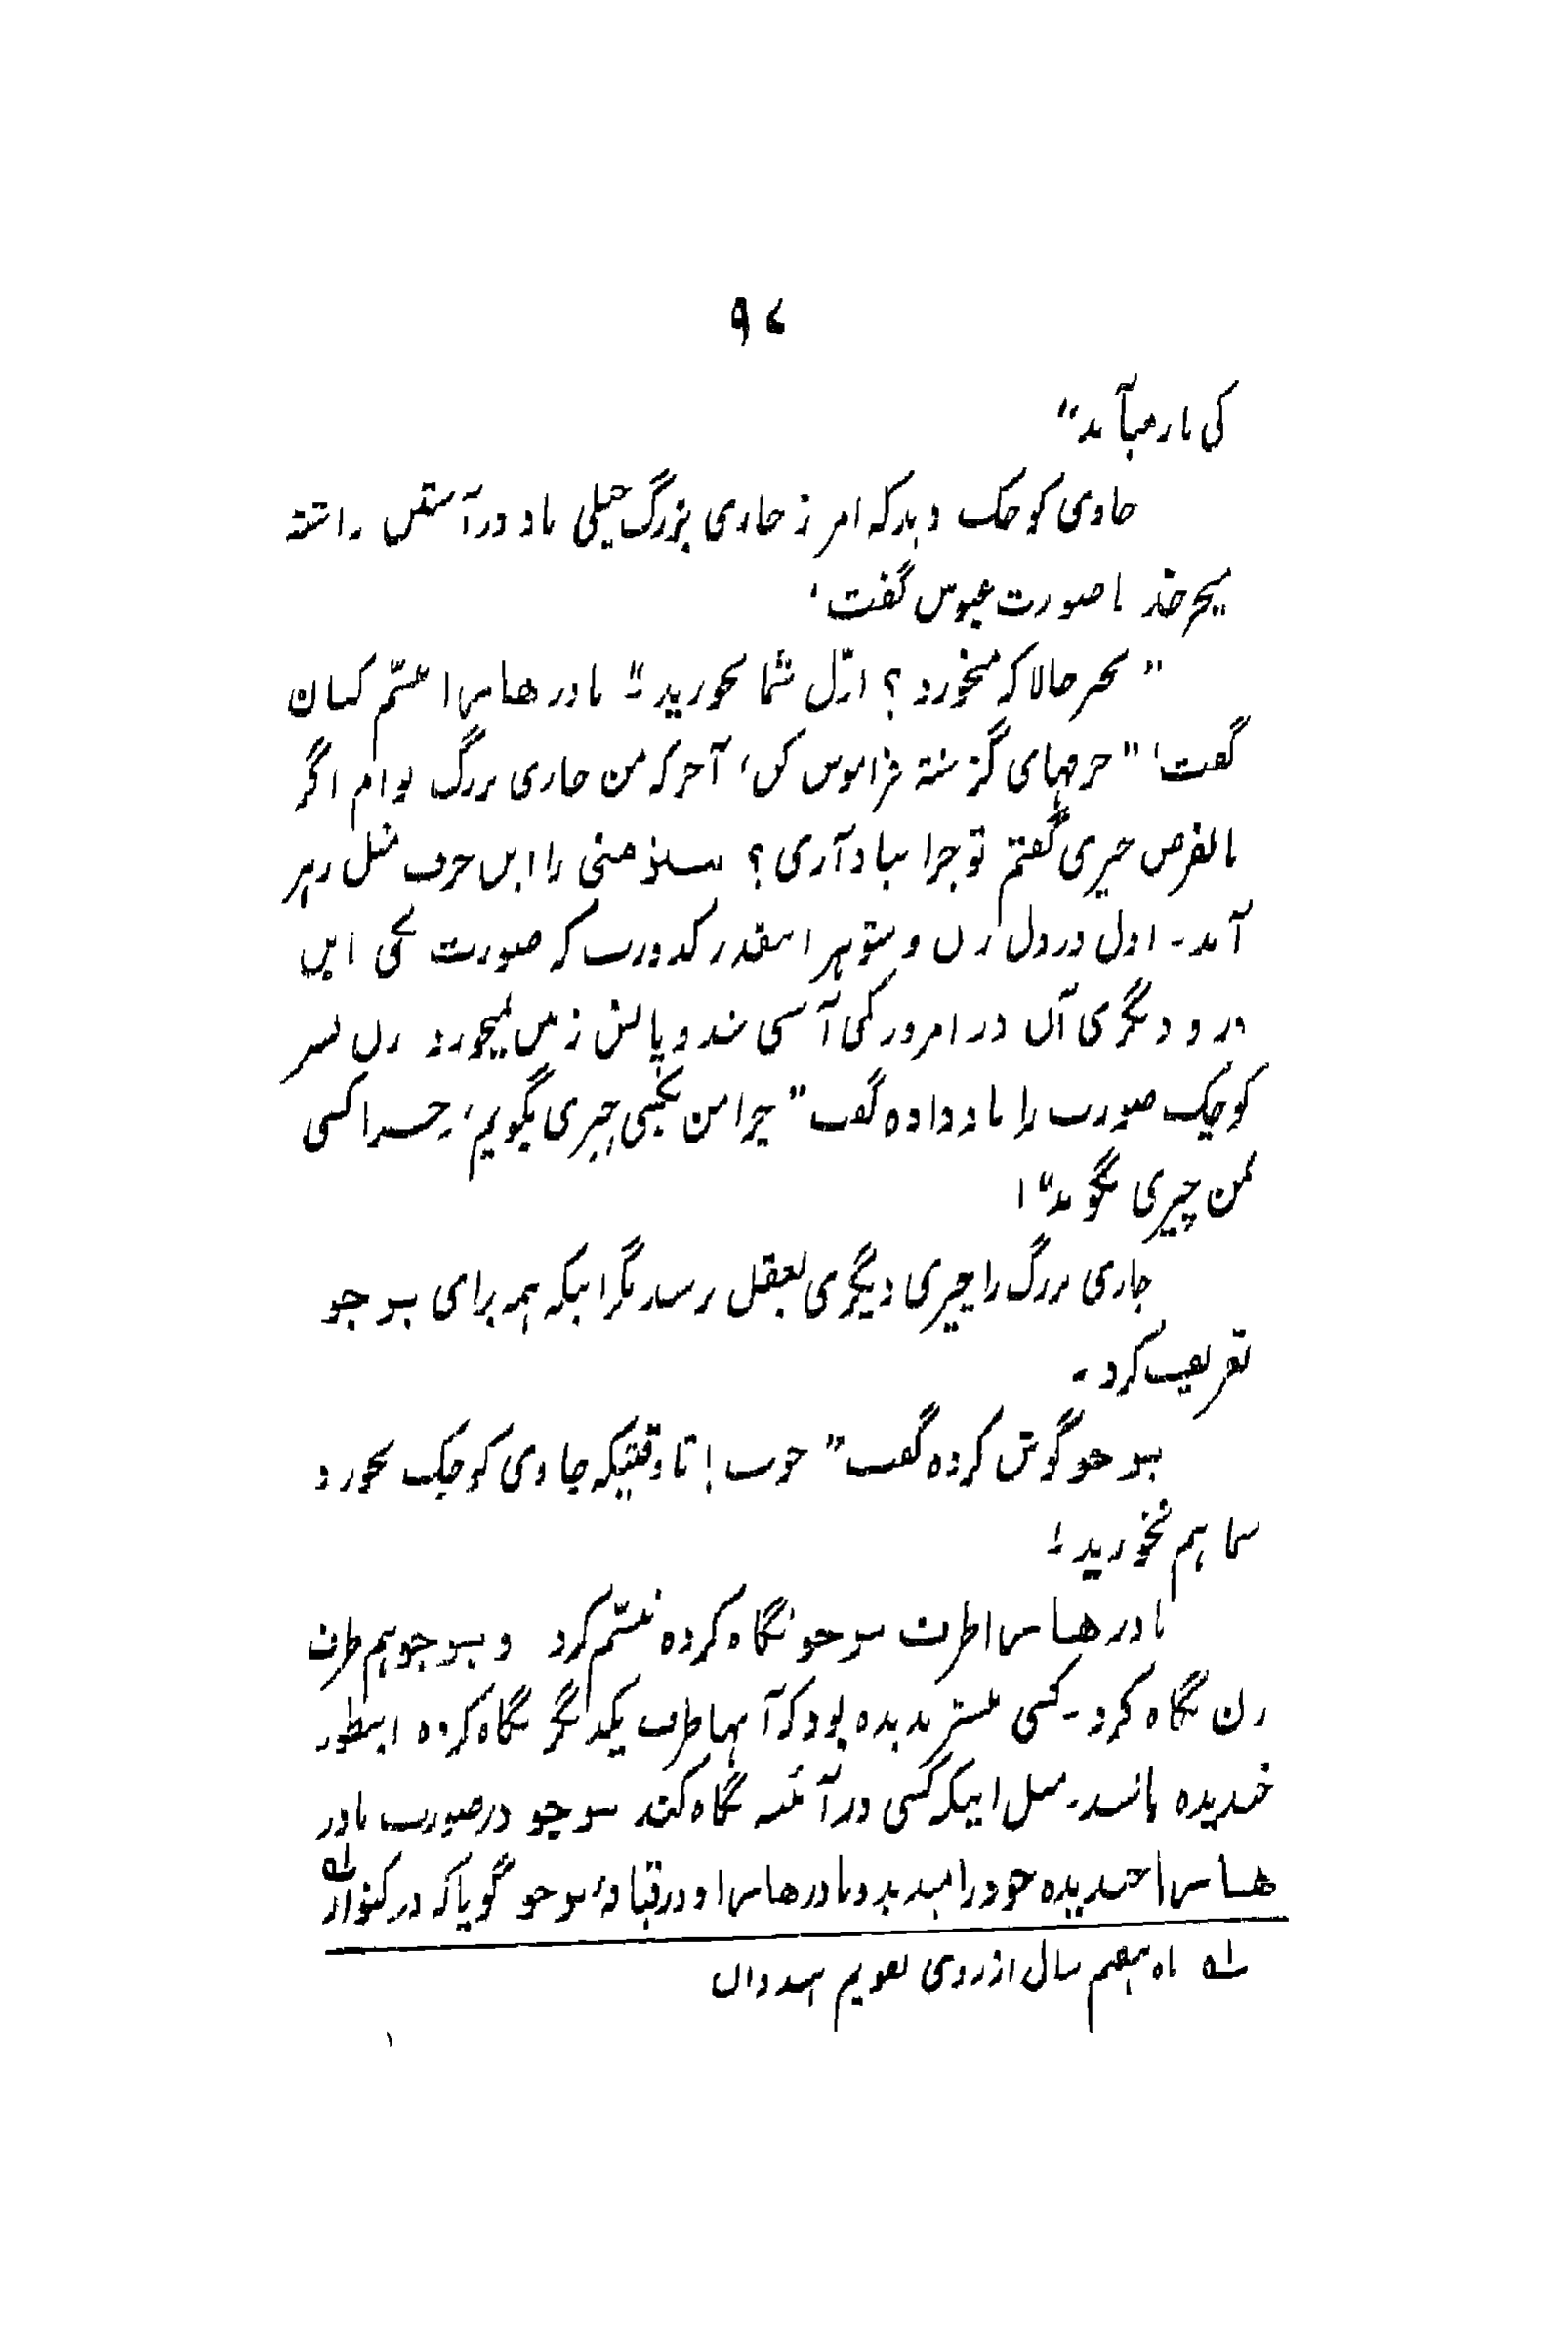 ۹۷
کی باز میآید"
جاوی کوچک دید که امروز جاوی بزرگ خیلی باد در آستین داشته
میچرخد با صورت عبوس گفت،
"بحر حالا که میخورد؟ اوّل شما بخورید" مادر هاسا تبسّم کنان
گفت، "حرفهای گزشته فراموش کن، آخر که من جاری بزرگ توام اگر
بالفرض چیزی گفتم تو چرا بیاد آری؟ سنومنی را این حرف مثل زهر
آمد۔ اول در دل زن و شوهر اینقدر کدورت که صورت یکی این
در و دیگری آن در امروز کمی آشتی شد و پایش زمین نمیخورد زن پسر
کوچک صورت را باد داده گفت "چرا من بکسی چیزی بگویم، چرا کسی
بمن چیزی بگوید"!
جاری بزرگ را چیزی دیگری بعقل نرسید مگر اینکه همه برای سوجو
تعریف کرد۔
سوجو گوش کرده گفت" خوب! تا وقتیکه جاوی کوچک نخورد
شما هم نخورید!
مادر هاسا طرف سوجو نگاه کرده تبسّم کرد و سوجو هم طرف
زن نگاه کرد۔ کسی کمتر ندیده بود که آنها طرف یکدیگر نگاه کرده اینطور
خندیده باشند۔ مثل اینکه کسی در آئنه نگاه کند سوجو در صورت مادر
هاسا خندیده خود را میدید و مادر هاسا او در قیافهٔ سوجو گویا که در کنوار له
له ماه هفتم سال از روی تقویم هندوان